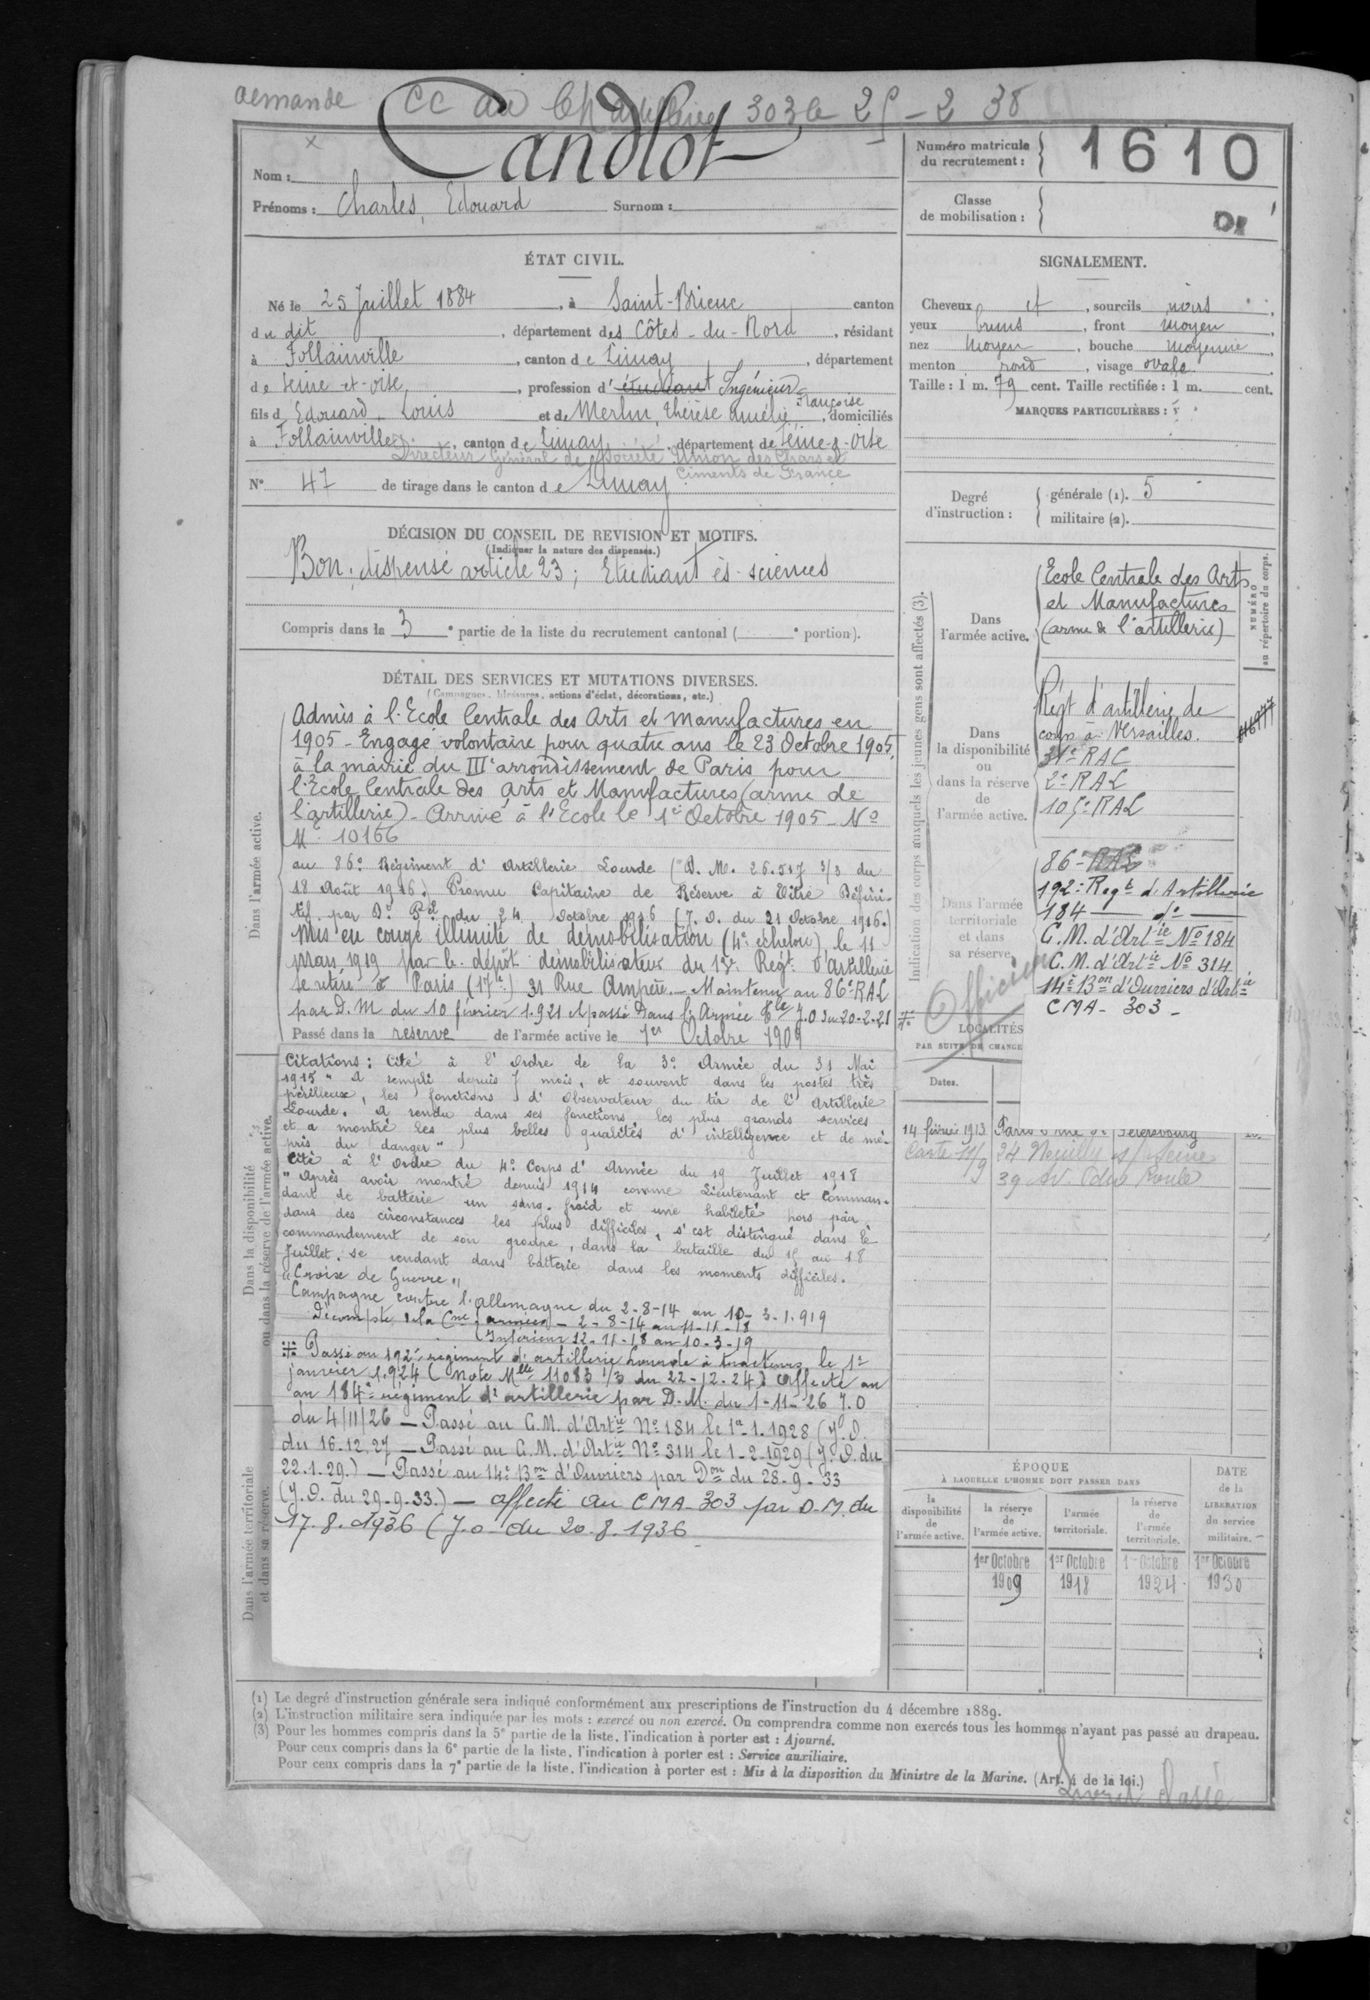 demande CC au 303 le 25-2 38
Nom : Candlot
Prénoms : Charles, Edouard Surnom :
Numéro matricule du recrutement : 1610
Classe de mobilisation :
ÉTAT CIVIL.
Né le 25 Juillet 1884, à Saint-Brieuc canton
du dit, département des Côtes-du-Nord, résidant
à Follainville, canton de Limay, département
de Seine-et-Oise, profession d'étudiant Ingénieur
fils d'Edouard, Louis et de Merlin, Thérèse Amélie Françoise, domiciliés
à Follainville, canton de Limay, département de Seine-&-Oise
Directeur Général de Société Union des Chaux et
Ciments de France
N° 47 de tirage dans le canton de Limay
SIGNALEMENT.
Cheveux et, sourcils noirs
yeux bruns, front moyen
nez moyen, bouche moyenne
menton rond, visage ovale
Taille : 1 m. 79 cent. Taille rectifiée : 1 m. cent.
MARQUES PARTICULIÈRES :
Degré d'instruction : générale (1). 5
militaire (2).
DÉCISION DU CONSEIL DE REVISION ET MOTIFS.
(Indiquer la nature des dispenses.)
Bon, dispensé article 23; Etudiant ès-sciences
Compris dans la 3e partie de la liste du recrutement cantonal ( e portion).
DÉTAIL DES SERVICES ET MUTATIONS DIVERSES.
(Campagnes, blessures, actions d'éclat, décorations, etc.)
Dans l'armée active.
Admis à l'Ecole Centrale des Arts et Manufactures en
1905 - Engagé volontaire pour quatre ans le 23 Octobre 1905,
à la mairie du IIIe arrondissement de Paris pour
l'Ecole Centrale des Arts et Manufactures (arme de
l'artillerie) - Arrivé à l'Ecole le 1er Octobre 1905 - No
Mle 10166
au 86e Régiment d'Artillerie Lourde (D. M. 26.517 3/3 du
18 Août 1916). Promu Capitaine de Réserve à Titre Défini-
tif par Dt Pel du 24 Octobre 1916 (J.O. du 21 Octobre 1916.)
Mis en congé illimité de démobilisation (4e échelon), le 11
Mars 1919 par le dépôt démobilisateur du 13e Régt d'Artillerie
se retire à Paris (17e) 31 Rue Ampère. - Maintenu au 86e RAL
par D.M du 10 février 1.921 et passé dans l'Armée Tle J.O du 20-2-21
Passé dans la réserve de l'armée active le 1er Octobre 1909
Dans la disponibilité
ou dans la réserve de l'armée active.
Citations : Cité à l'Ordre de la 3e Armée du 31 Mai
1915 "A rempli depuis 7 mois, et souvent dans les postes très
périlleux, les fonctions d'Observateur du tir de l'Artillerie
Lourde. A rendu dans ses fonctions les plus grands services
et a montré les plus belles qualités d'intelligence et de mé-
pris du danger"
Cité à l'Ordre du 4e Corps d'Armée du 19 Juillet 1918
"Après avoir montré depuis 1914 comme Lieutenant et Comman-
dant de batterie un sang-froid et une habileté hors pair,
dans des circonstances les plus difficiles, s'est distingué dans le
commandement de son groupe, dans la bataille du 15 au 18
Juillet, se rendant dans batterie dans les moments difficiles.
"Croix de Guerre"
Campagne contre l'Allemagne du 2-8-14 au 10-3-1.919
Décompte de la Cne (armées) - 2-8-14 au 11-11-18
(Intérieur 12-11-18 au 10-3-19
Passé au 192e régiment d'artillerie lourde à tracteurs le 1er
janvier 1.924 (note Mlle 11083 1/3 du 22-12-24) affecté au
au 184e régiment d'artillerie par D.M. du 1-11-26 J.O
du 4/11/26 - Passé au C.M. d'Artie No 184 le 1er-1.1928 (J.O.
du 16.12.27 - Passé au C.M. d'Artie No 314 le 1-2-1929 (J.O. du
22.1.29.) - Passé au 14e Bon d'Ouvriers par Don du 28-9-33
(J.O. du 29-9-33.) - affecté au CMA-303 par D.M. du
17.8.1936 (J.o du 20.8.1936
Dans l'armée territoriale
et dans sa réserve.
Indication des corps auxquels les jeunes gens sont affectés (3).
NUMÉRO au répertoire du corps.
Dans l'armée active.
Ecole Centrale des Arts
et Manufactures
(arme de l'artillerie)
Dans la disponibilité ou dans la réserve de l'armée active.
Régt d'artillerie de
corps à Versailles.
31e RAC
2e RAL
105e RAL
Dans l'armée territoriale et dans sa réserve.
86e RAL
192e Regt d'Artillerie
184 - do -
C.M. d'Artie No 184
C.M. d'Artie No 314
14e Bon d'Ouvriers d'Artie
CMA-303-
Officier
LOCALITÉS
PAR SUITE DE CHANGE
Dates.
14 février 1913 Paris rue St Petersbourg
Carte 11/9 34 Neuilly s/ Seine
39 Av. du Roule
ÉPOQUE
À LAQUELLE L'HOMME DOIT PASSER DANS
DATE de la LIBÉRATION du service militaire.
la disponibilité de l'armée active.
la réserve de l'armée active.
l'armée territoriale.
la réserve de l'armée territoriale.
1er Octobre 1909
1er Octobre 1918
1er Octobre 1924
1er Octobre 1930
(1) Le degré d'instruction générale sera indiqué conformément aux prescriptions de l'instruction du 4 décembre 1889.
(2) L'instruction militaire sera indiquée par les mots : exercé ou non exercé. On comprendra comme non exercés tous les hommes n'ayant pas passé au drapeau.
(3) Pour les hommes compris dans la 5e partie de la liste, l'indication à porter est : Ajourné.
Pour ceux compris dans la 6e partie de la liste, l'indication à porter est : Service auxiliaire.
Pour ceux compris dans la 7e partie de la liste, l'indication à porter est : Mis à la disposition du Ministre de la Marine. (Art. 4 de la loi.)
Livret classé